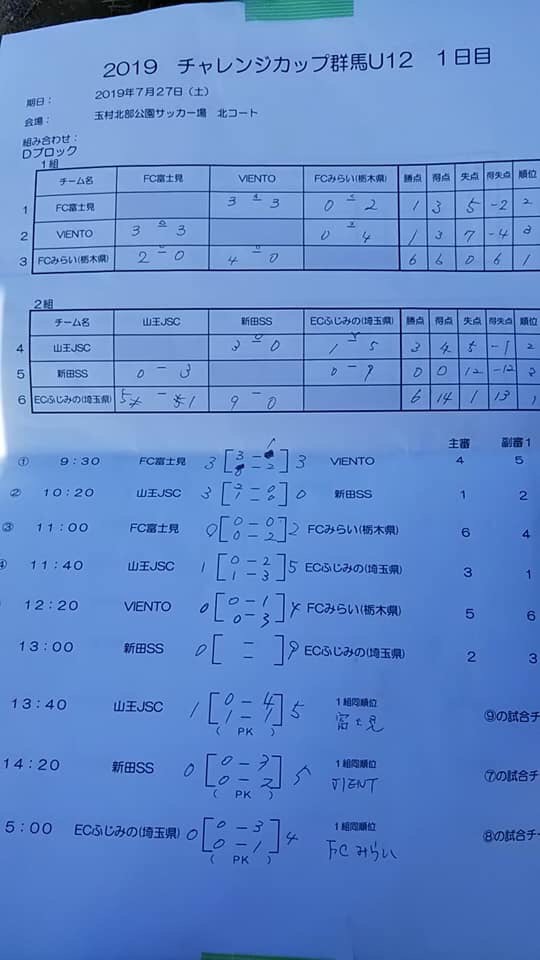 2019 チャレンジカップ群馬U12 1日目
期日： 2019年7月27日(土)
会場： 玉村北部公園サッカー場 北コート
組み合わせ：
Dブロック
1組
チーム名 FC富士見 VIENTO FCみらい(栃木県) 勝点 得点 失点 得失点 順位
1 FC富士見 3 3 0 2 1 3 5 -2 2
2 VIENTO 3 3 0 4 1 3 7 -4 3
3 FCみらい(栃木県) 2 - 0 4 0 6 6 0 6 1
2組
チーム名 山王JSC 新田SS ECふじみの(埼玉県) 勝点 得点 失点 得失点 順位
4 山王JSC 3 0 1 5 3 4 5 -1 2
5 新田SS 0 - 3 0 - 9 0 0 12 -12 3
6 ECふじみの(埼玉県) 5 - 1 9 - 0 6 14 1 13 1
主審 副審1
① 9:30 FC富士見 3 [ 3 - 1 ] 3 VIENTO 4 5
- 2
② 10:20 山王JSC 3 [ 2 - 0 ] 0 新田SS 1 2
1 - 0
③ 11:00 FC富士見 0 [ 0 - 0 ] 2 FCみらい(栃木県) 6 4
0 - 2
④ 11:40 山王JSC 1 [ 0 - 2 ] 5 ECふじみの(埼玉県) 3 1
1 - 3
12:20 VIENTO 0 [ 0 - 1 ] 4 FCみらい(栃木県) 5 6
0 - 3
13:00 新田SS 0 [ - ] 9 ECふじみの(埼玉県) 2 3
-
13:40 山王JSC 1 [ 0 - 4 ] 5 1組同順位 富士見 ⑨の試合チ
1 - 1
( PK )
14:20 新田SS 0 [ 0 - 3 ] 5 1組同順位 VIENT ⑦の試合チ
0 - 2
( PK )
5:00 ECふじみの(埼玉県) 0 [ 0 - 3 ] 4 1組同順位 FCみらい ⑧の試合チ
0 - 1
( PK )